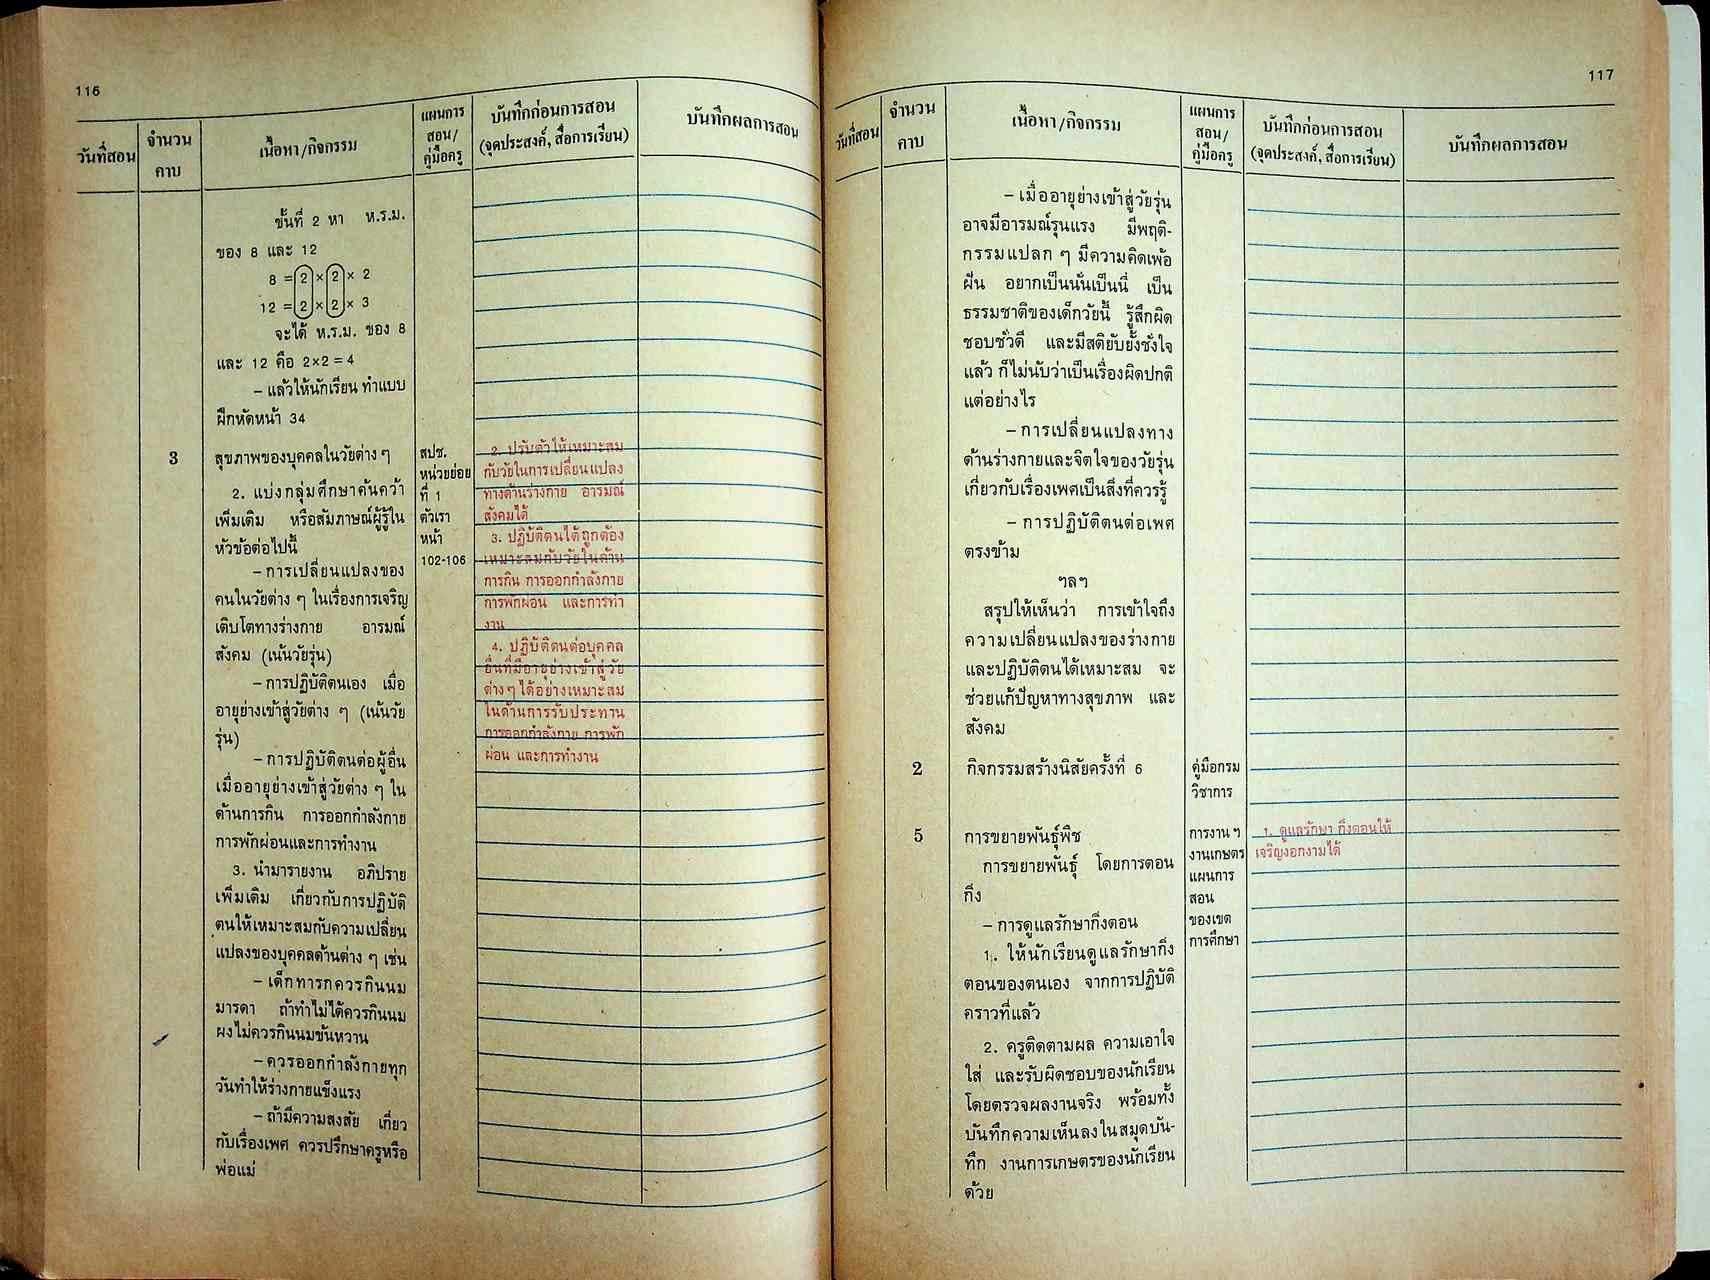 116
วันที่สอน
จำนวน
คาบ
เนื้อหา/กิจกรรม
แผนการ
สอน/
คู่มือครู
บันทึกก่อนการสอน
(จุดประสงค์, สื่อการเรียน)
บันทึกผลการสอน
ขั้นที่ 2 หา ห.ร.ม.
ของ 8 และ 12
8 = 2 × 2 × 2
12 = 2 × 2 × 3
จะได้ ห.ร.ม. ของ 8
และ 12 คือ 2×2 = 4
– แล้วให้นักเรียนทำแบบ
ฝึกหัดหน้า 34
3
สุขภาพของบุคคลในวัยต่าง ๆ
2. แบ่งกลุ่มศึกษาค้นคว้า
เพิ่มเติม หรือสัมภาษณ์ผู้รู้ใน
หัวข้อต่อไปนี้
– การเปลี่ยนแปลงของ
คนในวัยต่าง ๆ ในเรื่องการเจริญ
เติบโตทางร่างกาย อารมณ์
สังคม (เน้นวัยรุ่น)
– การปฏิบัติตนเอง เมื่อ
อายุย่างเข้าสู่วัยต่าง ๆ (เน้นวัย
รุ่น)
– การปฏิบัติตนต่อผู้อื่น
เมื่ออายุย่างเข้าสู่วัยต่าง ๆ ใน
ด้านการกิน การออกกำลังกาย
การพักผ่อนและการทำงาน
3. นำมารายงาน อภิปราย
เพิ่มเติม เกี่ยวกับการปฏิบัติ
ตนให้เหมาะสมกับความเปลี่ยน
แปลงของบุคคลด้านต่าง ๆ เช่น
– เด็กทารกควรกินนม
มารดา ถ้าทำไม่ได้ควรกินนม
ผงไม่ควรกินนมข้นหวาน
– ควรออกกำลังกายทุก
วันทำให้ร่างกายแข็งแรง
– ถ้ามีความสงสัย เกี่ยว
กับเรื่องเพศ ควรปรึกษาครูหรือ
พ่อแม่
สปช.
หน่วยย่อย
ที่ 1
ตัวเรา
หน้า
102-106
2. ปรับตัวให้เหมาะสม
กับวัยในการเปลี่ยนแปลง
ทางด้านร่างกาย อารมณ์
สังคมได้
3. ปฏิบัติตนได้ถูกต้อง
เหมาะสมกับวัยในด้าน
การกิน การออกกำลังกาย
การพักผ่อน และการทำ
งาน
4. ปฏิบัติตนต่อบุคคล
อื่นที่มีอายุย่างเข้าสู่วัย
ต่างๆ ได้อย่างเหมาะสม
ในด้านการรับประทาน
การออกกำลังกาย การพัก
ผ่อน และการทำงาน
117
วันที่สอน
จำนวน
คาบ
เนื้อหา/กิจกรรม
แผนการ
สอน/
คู่มือครู
บันทึกก่อนการสอน
(จุดประสงค์, สื่อการเรียน)
บันทึกผลการสอน
– เมื่ออายุย่างเข้าสู่วัยรุ่น
อาจมีอารมณ์รุนแรง มีพฤติ-
กรรมแปลก ๆ มีความคิดเพ้อ
ฝัน อยากเป็นนั่นเป็นนี่ เป็น
ธรรมชาติของเด็กวัยนี้ รู้สึกผิด
ชอบชั่วดี และมีสติยับยั้งชั่งใจ
แล้ว ก็ไม่นับว่าเป็นเรื่องผิดปกติ
แต่อย่างไร
– การเปลี่ยนแปลงทาง
ด้านร่างกายและจิตใจของวัยรุ่น
เกี่ยวกับเรื่องเพศเป็นสิ่งที่ควรรู้
– การปฏิบัติตนต่อเพศ
ตรงข้าม
ฯลฯ
สรุปให้เห็นว่า การเข้าใจถึง
ความเปลี่ยนแปลงของร่างกาย
และปฏิบัติตนได้เหมาะสม จะ
ช่วยแก้ปัญหาทางสุขภาพ และ
สังคม
2
กิจกรรมสร้างนิสัยครั้งที่ 6
คู่มือกรม
วิชาการ
5
การขยายพันธุ์พืช
การขยายพันธุ์ โดยการตอน
กิ่ง
– การดูแลรักษากิ่งตอน
1. ให้นักเรียนดูแลรักษากิ่ง
ตอนของตนเอง จากการปฏิบัติ
คราวที่แล้ว
2. ครูติดตามผล ความเอาใจ
ใส่ และรับผิดชอบของนักเรียน
โดยตรวจผลงานจริง พร้อมทั้ง
บันทึกความเห็นลงในสมุดบัน-
ทึก งานการเกษตรของนักเรียน
ด้วย
การงาน ฯ
งานเกษตร
แผนการ
สอน
ของเขต
การศึกษา
1. ดูแลรักษา กิ่งตอนให้
เจริญงอกงามได้